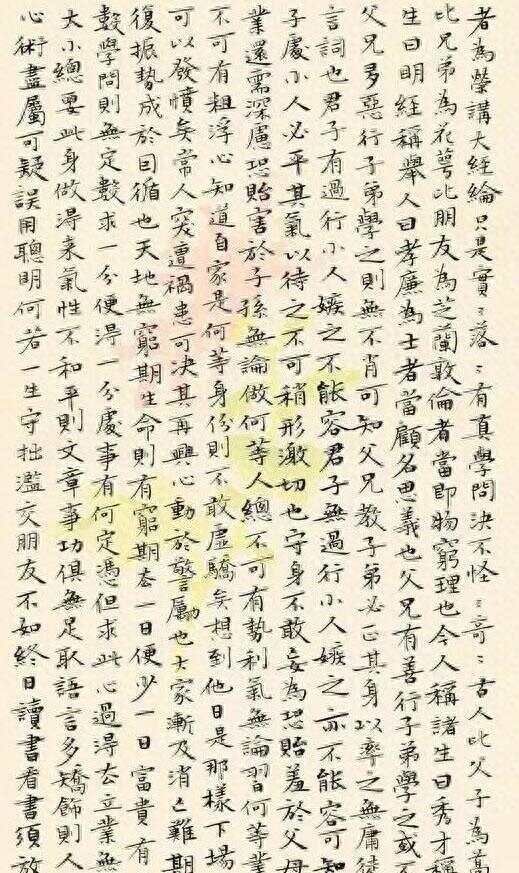 者為榮講大經綸只是實〻落〻有真學問決不怪〻奇〻古人比父子為
比兄弟為花萼比朋友為芝蘭敦倫者當即物窮理也今人稱諸生曰秀才稱
生曰明經稱舉人曰孝廉為士者當顧名思義也父兄有善行子弟學之或不
父兄多惡行子弟學之則無不肖可知父兄教子弟必正其身以率之無庸徒
言詞也君子有過行小人嫉之不能容君子無過行小人嫉之亦不能容可知
子處小人必平其氣以待之不可稍形激切也守身不敢妄為恐貽羞於父母
業還需深慮恐貽害於子孫無論做何等人總不可有勢利氣無論習何等業
不可有粗浮心知道自家是何等身份則不敢虛驕矣想到他日是那樣下場
可以發憤矣常人突遭禍患可決其再興心動於警勵也大家漸及消亡難期
復振勢成於因循也天地無窮期生命則有窮期去一日便少一日富貴有
數學問則無定數求一分便得一分處事有何定憑但求此心過得去立業無
大小總要此身做得來氣性不和平則文章事功俱無足取語言多矯飾則人
心術盡屬可疑誤用聰明何若一生守拙濫交朋友不如終日讀書看書須放